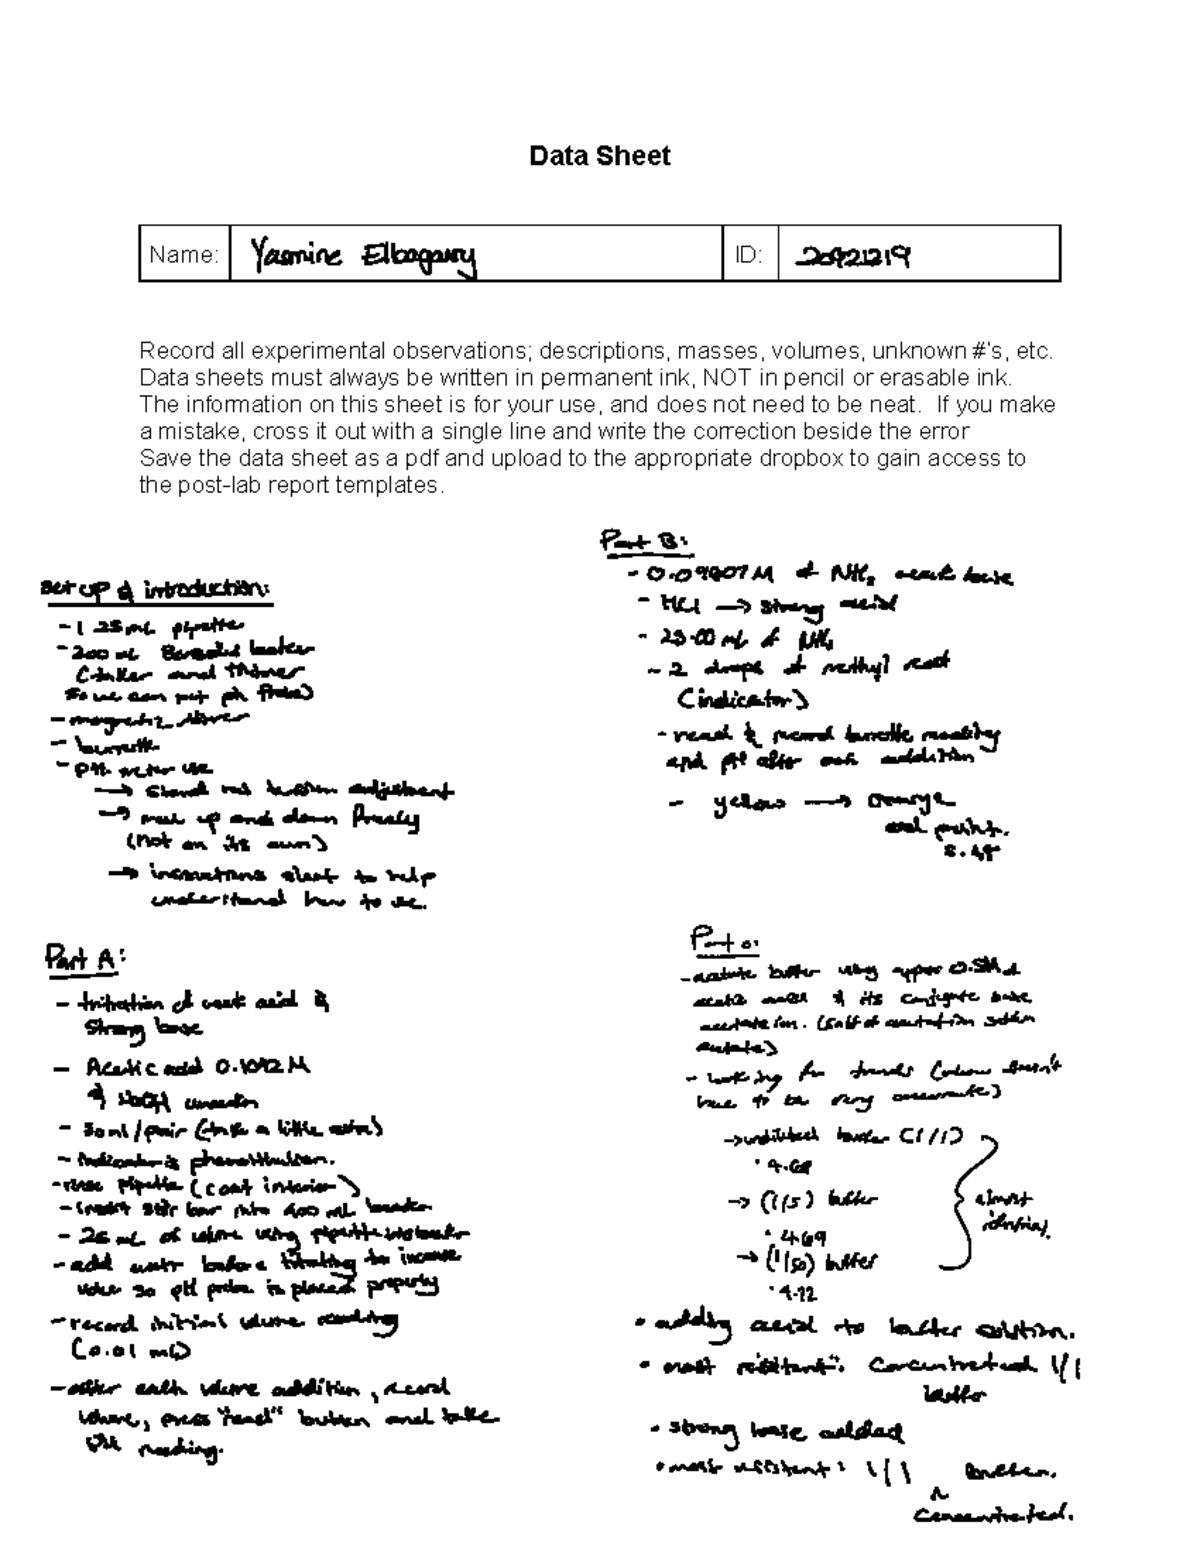 Data Sheet
Name: Yasmine Elbagawry ID: 20921219
Record all experimental observations; descriptions, masses, volumes, unknown #'s, etc.
Data sheets must always be written in permanent ink, NOT in pencil or erasable ink.
The information on this sheet is for your use, and does not need to be neat. If you make
a mistake, cross it out with a single line and write the correction beside the error
Save the data sheet as a pdf and upload to the appropriate dropbox to gain access to
the post-lab report templates.
Set up & introduction:
- 1 25mL pipette
- 200 mL beaker
(taller and thinner
so we can put ph probe)
- magnetic stirrer
- burrette
- pH meter use
→ adjustment
→ move up and down freely
(not on its own)
→ instructions sheet to help
understand how to use.
Part A:
- titration of weak acid &
strong base
- Acetic acid 0.1042 M
& NaOH
- 50ml/pair (take a little extra)
- indicator is
- rinse pipette (coat interior)
- insert stir bar into 400 mL beaker
- 25 mL of using pipette into beaker
- add water before titrating to increase
volume so pH probe is placed properly
- record initial volume reading
(0.01 ml)
- after each volume addition, record
volume, press "read" button and take
pH reading.
Part B:
- of NH₃ weak base
- HCl → strong acid
- 25.00 mL of NH₃
- 2 drops of methyl red
(indicator)
- read & record burette reading
and pH after each addition
- yellow → orange
end point.
Part
- acetate buffer using approx 0.5M
& its conjugate base
acetate ion.
acetate)
- looking for trends doesn't
have to be very
→ undiluted buffer (1/1)
• 4.68
→ (1/5) buffer
• 4.69
→ (1/50) buffer
• 4.72
almost
identical.
• adding acid to buffer solution.
• most resistant: concentrated 1/1
buffer
• strong base added
• most resistant: 1/1 buffer.
^
concentrated.